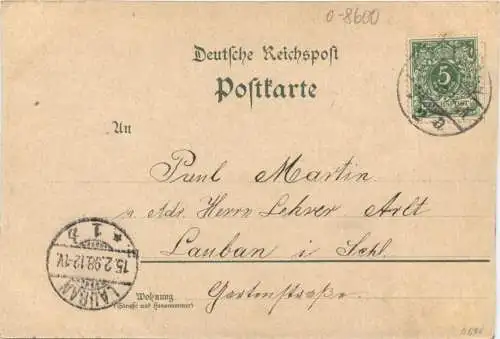 0-8600
Deutsche Reichspost
Postkarte
5
An
Paul Martin
p. Adr. Herrn Lehrer Arlt
Lauban i. Schl.
Gartenstraße.
Wohnung
(Straße und Hausnummer)
LAUBAN
15.2.98.12-1V.
* 1 b